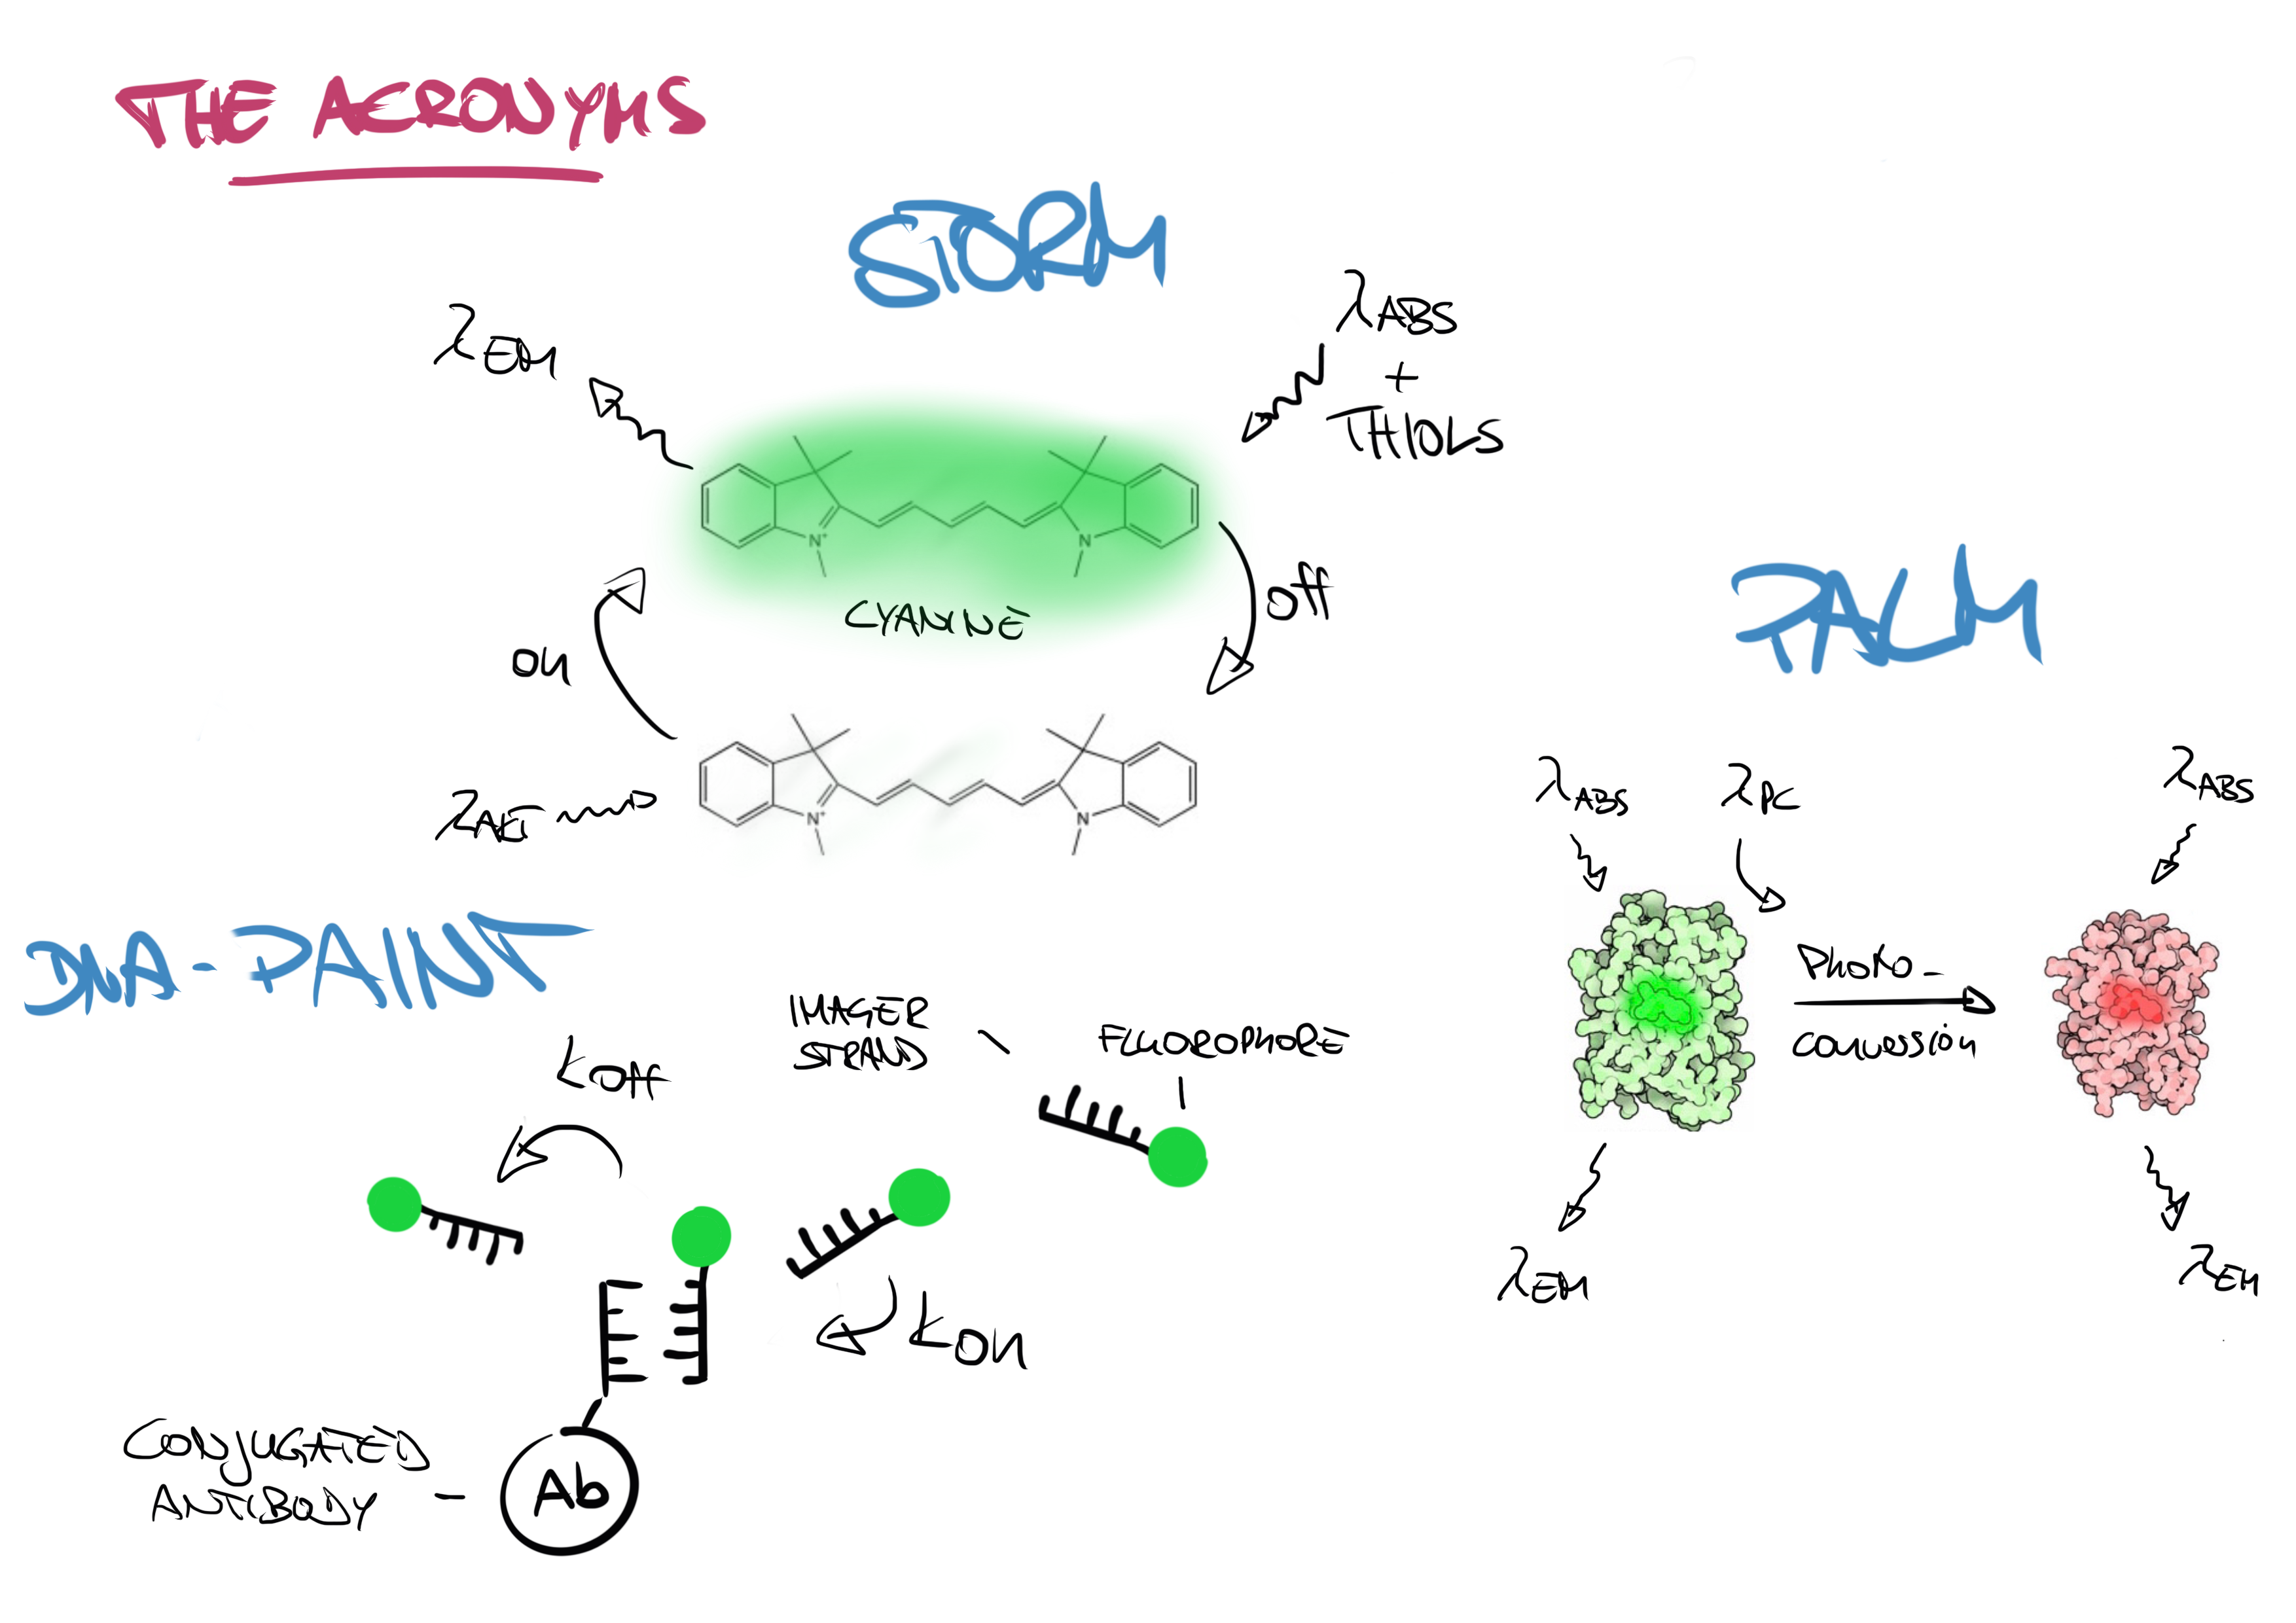 THE ACRONYMS
STORM
λEM
λABS
+
THIOLS
N⁺
N
CYANINE
on
off
λAKT
N⁺
N
PALM
λABS
λPC
λABS
Photo-
conversion
λEM
λEM
DNA-PAINT
IMAGER
STRAND
FLUOROPHORE
koff
kon
CONJUGATED
ANTIBODY
Ab